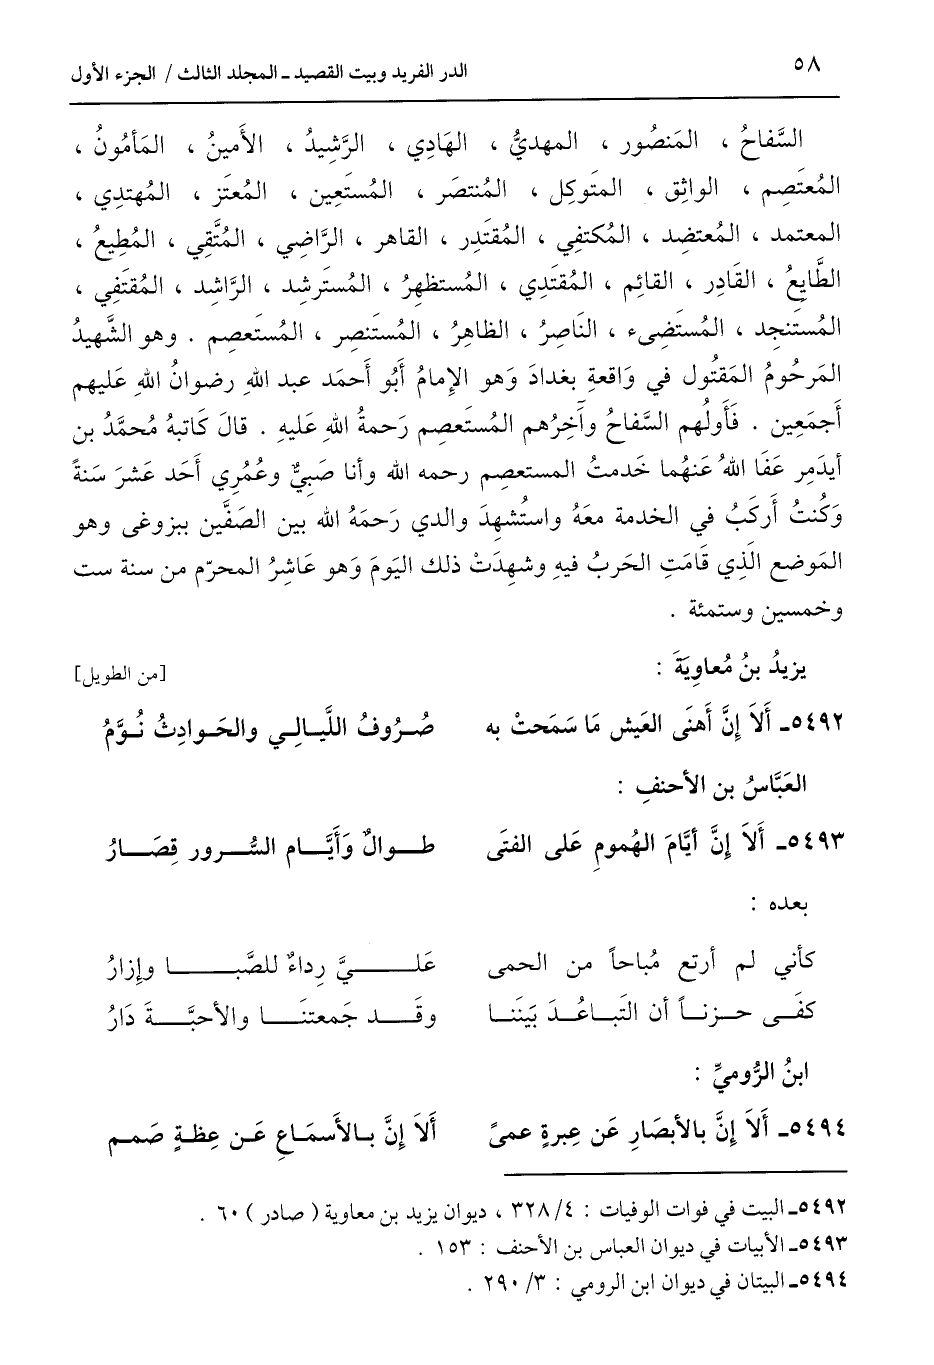 ٥٨
الدر الفريد وبيت القصيد ـ المجلد الثالث / الجزء الأول
السَّفاحُ ، المَنصُور ، المهديُّ ، الهَادِي ، الرَّشِيدُ ، الأَمينُ ، المَأمُونُ ،
المُعتَصِم ، الواثِق ، المتَوكِل ، المُنتصَر ، المُستَعِين ، المُعتَز ، المُهتدِي ،
المعتمد ، المُعتضِد ، المُكتفِي ، المُقتَدِر ، القاهر ، الرَّاضِي ، المُتَّقِي ، المُطِيعُ ،
الطَّايعُ ، القَادِر ، القائِم ، المُقتَدِي ، المُستظهِرُ ، المُسترشِد ، الرَّاشِد ، المُقتَفِي ،
المُستَنجِد ، المُستَضِىء ، النَاصِرُ ، الظاهِرُ ، المُستَنصِر ، المُستَعصِم . وهو الشَّهيدُ
المَرحومُ المَقتُول في وَاقعةِ بغدادَ وَهو الإمامُ أَبُو أَحمَد عبد اللهِ رضوانُ اللهِ عَليهم
أَجمَعِين . فَأَولُهم السَّفاحُ وآخِرُهم المُستَعصِم رَحمةُ اللهِ عَليهِ . قالَ كَاتبهُ مُحمَّدُ بن
أيدَمِر عَفَا اللهُ عَنهُما خَدمتُ المستعصِم رحمه الله وأنا صَبِيٌّ وعُمُرِي أَحَد عَشَرَ سَنةً
وَكُنتُ أَركَبُ في الخدمة معَهُ واستُشهِدَ والدي رَحمَهُ الله بين الصَفَّين ببزوغى وهو
المَوضع الَذِي قَامَتِ الحَربُ فيهِ وشهِدَتْ ذلك اليَومَ وَهو عَاشِرُ المحرّم من سنة ست
وخمسين وستمئة .
يزيدُ بنُ مُعاوِيَةَ : [من الطويل]
٥٤٩٢ـ أَلاَ إِنَّ أَهنَى العَيش مَا سَمَحتْ به صُرُوفُ اللَّيـالِـي والحَـوادِثُ نُـوَّمُ
العَبَّاسُ بن الأحنفِ :
٥٤٩٣ـ أَلاَ إِنَّ أيَّامَ الهُمومِ عَلى الفتَى طـوالٌ وَأَيَّـام السُّـرور قِصَـارُ
بعده :
كأني لم أرتع مُباحاً من الحمى عَلـيَّ رِداءٌ للصَّبـا وإِزارُ
كفَـى حـزنـاً أن التَبـاعُـدَ بَينَنـا وقَـد جَمعتنَـا والأحبَّـةَ دَارُ
ابنُ الرُّوميِّ :
٥٤٩٤ـ أَلاَ إِنَّ بالأبصَارِ عَن عِبرةٍ عمىً أَلاَ إِنَّ بـالأَسمَـاعِ عَـن عِظـةٍ صَمـم
٥٤٩٢ـ البيت في فوات الوفيات : ٤/ ٣٢٨ ، ديوان يزيد بن معاوية ( صادر ) ٦٠ .
٥٤٩٣ـ الأبيات في ديوان العباس بن الأحنف : ١٥٣ .
٥٤٩٤ـ البيتان في ديوان ابن الرومي : ٣/ ٢٩٠ .